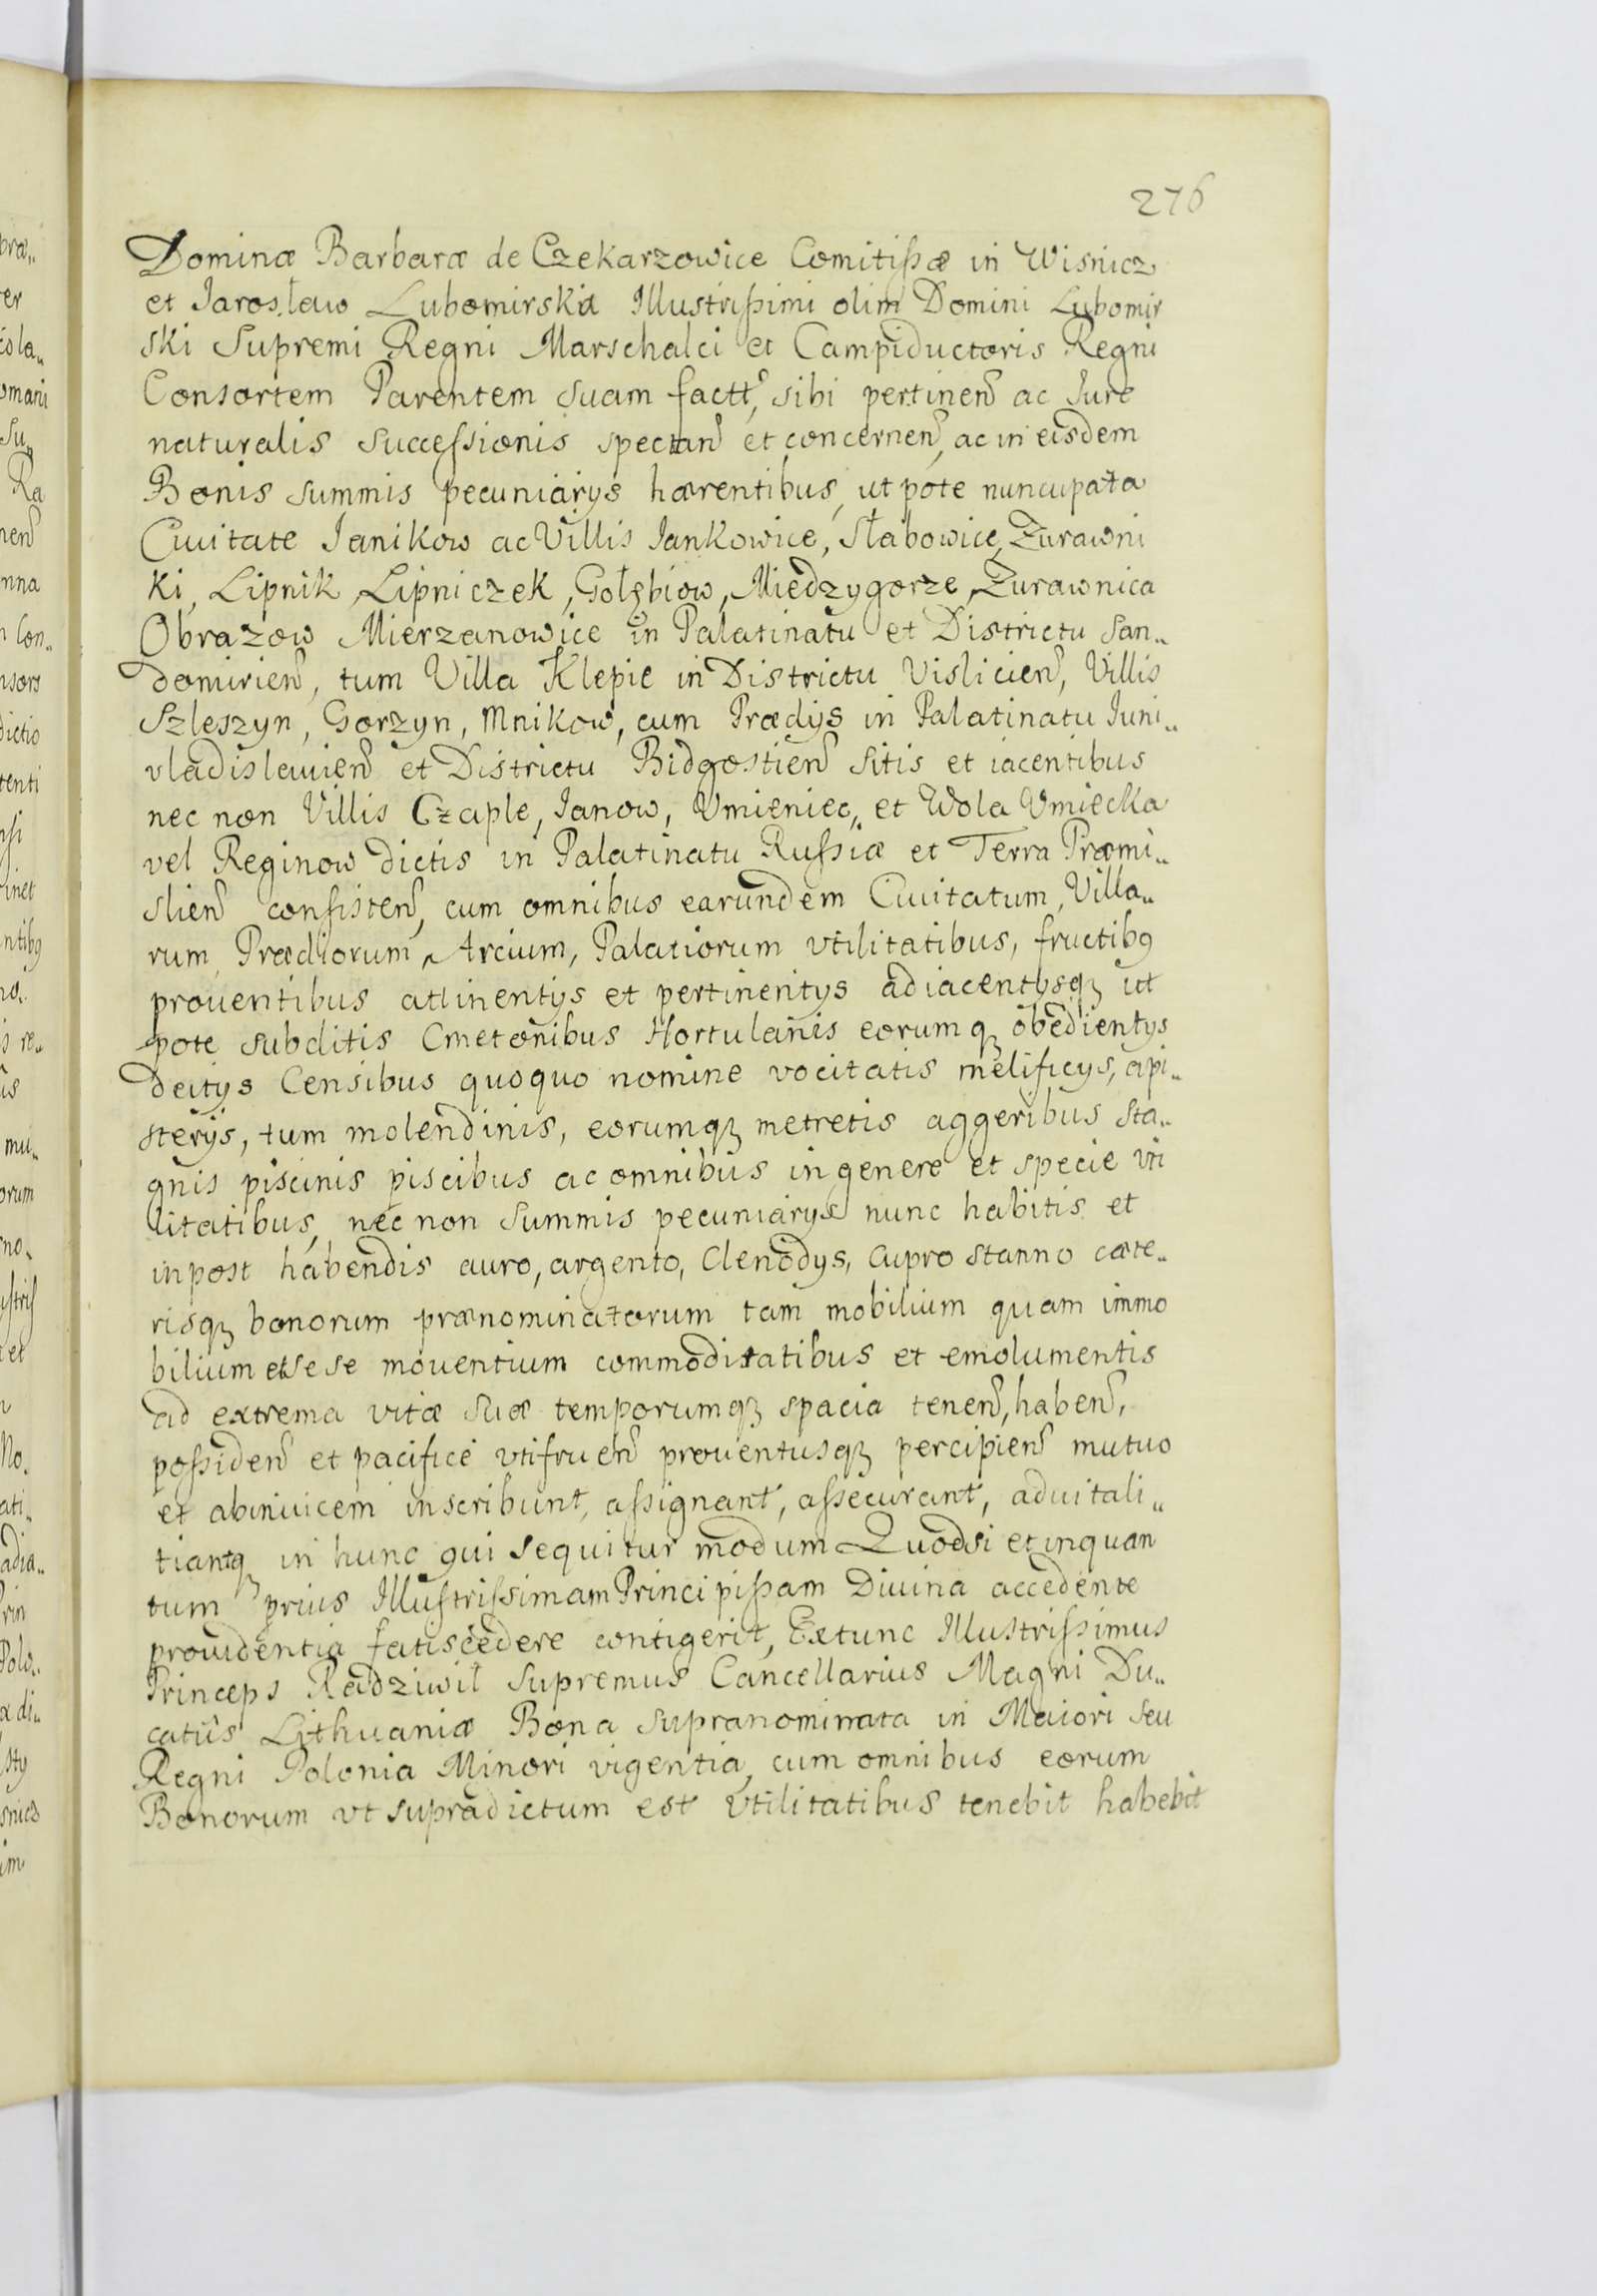 276
Dominæ Barbaræ de Czekarzowice Comitißæ in Wisnicz
et Jarosław Lubomirska Illustrißimi olim Domini Lubomir
ski Supremi Regni Marschalci et Campiductoris Regni
Consortem Parentem suam factt, sibi pertinen ac Jure
naturalis Succeſsionis spectan et concernen, ac in eisdem
Bonis summis pecuniarys hærentibus, ut pote nuncupata
Ciuitate Janikow ac Villis Jankowice, Słabowice, Zurawni
ki, Lipnik, Lipniczek, Gołębiow, Miedzygorze, Zurawnica
Obrazow Mierzanowice in Palatinatu et Districtu San„
domirien, tum Villa Klepie in Districtu Vislicien, Villis
Szleszyn, Gorzyn, Mnikow, cum Prædys in Palatinatu Juni„
vladislauien et Districtu Bidgostien sitis et iacentibus
nec non Villis Czaple, Janow, Vmieniec, et Wola Vmiecka
vel Reginow dictis in Palatinatu Rußiæ et Terra Præmi„
slien conſisten, cum omnibus earundem Ciuitatum, Villa„
rum, Prædiorum, Arcium, Palatiorum vtilitatibus, fructibq
prouentibus attinentys et pertinentys adiacentysqz ut
pote subditis Cmetonibus Hortulanis eorumqz obedientys
deitys Censibus quoquo nomine vocitatis melificys, api„
sterys, tum molendinis, eorumqz metretis aggeribus sta„
gnis piscinis piscibus ac omnibus in genere et specie vti
litatibus, nec non summis pecuniarys nunc habitis et
inpost habendis auro, argento, Clenodys, Cupro stanno cæte„
risqz bonorum prænominatorum tam mobilium quam immo
bilium et sese mouentium commoditatibus et emolumentis
ad extrema vitæ suæ temporumqz spacia tenen, haben,
poßiden et pacifice vtifruen prouentusqz percipien mutuo
et abinuicem inscribunt, aßignant, aßecurant, aduitali„
tiantqz in hunc qui sequitur modum Quodsi et inquan
tum prius Illuſtriſsimam Principißam Diuina accedente
prouidentia fatiscedere contigerit, Extunc Illustrißimus
Princeps Radziwił Supremus Cancellarius Magni Du„
catûs Lithuaniæ Bona supranominata in Maiori seu
Regni Polonia Minori vigentia, cum omnibus eorum
Bonorum vt supradictum est vtilitatibus tenebit habebit